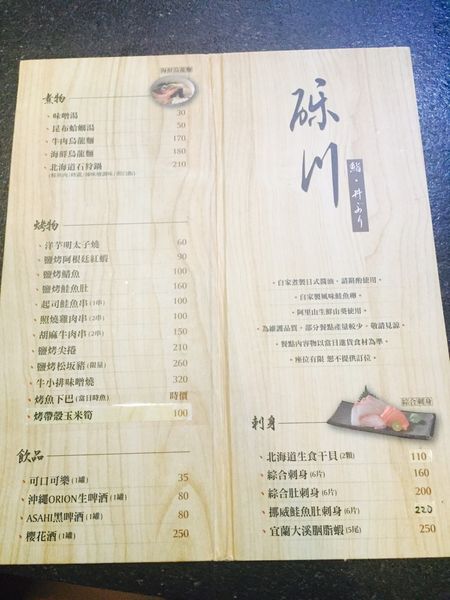 海鮮烏龍麵
煮物
、味噌湯 30
、昆布蛤蜊湯 50
、牛肉烏龍麵 170
、海鮮烏龍麵 180
、北海道石狩鍋 210
烤物
、洋芋明太子燒 60
、鹽烤阿根廷紅蝦 90
、鹽烤鯖魚 100
、鹽烤鮭魚肚 160
、起司鮭魚串(1串) 100
、照燒雞肉串(2串) 100
、胡麻牛肉串(2串) 150
、鹽烤尖捲 210
、鹽烤松坂豬(限量) 260
、牛小排味噌燒 320
、烤魚下巴(當日時魚) 時價
、烤帶殼玉米筍 100
飲品
、可口可樂(1罐) 35
、沖繩ORION生啤酒(1罐) 80
、ASAHI黑啤酒(1罐) 80
、櫻花酒(1罐) 250
礫川
鮨・丼ぶり
・自家煮製日式醬油，請斟酌使用。
・自家製風味鮭魚卵。
・阿里山生鮮山葵使用。
・為維護品質，部分餐點產量較少，敬請見諒。
・餐點內容物以當日進貨食材為準。
・座位有限 恕不提供訂位。
綜合刺身
刺身
、北海道生食干貝(2顆) 110
、綜合刺身(6片) 160
、綜合肚刺身(6片) 200
、挪威鮭魚肚刺身(6片) 220
、宜蘭大溪胭脂蝦(5尾) 250